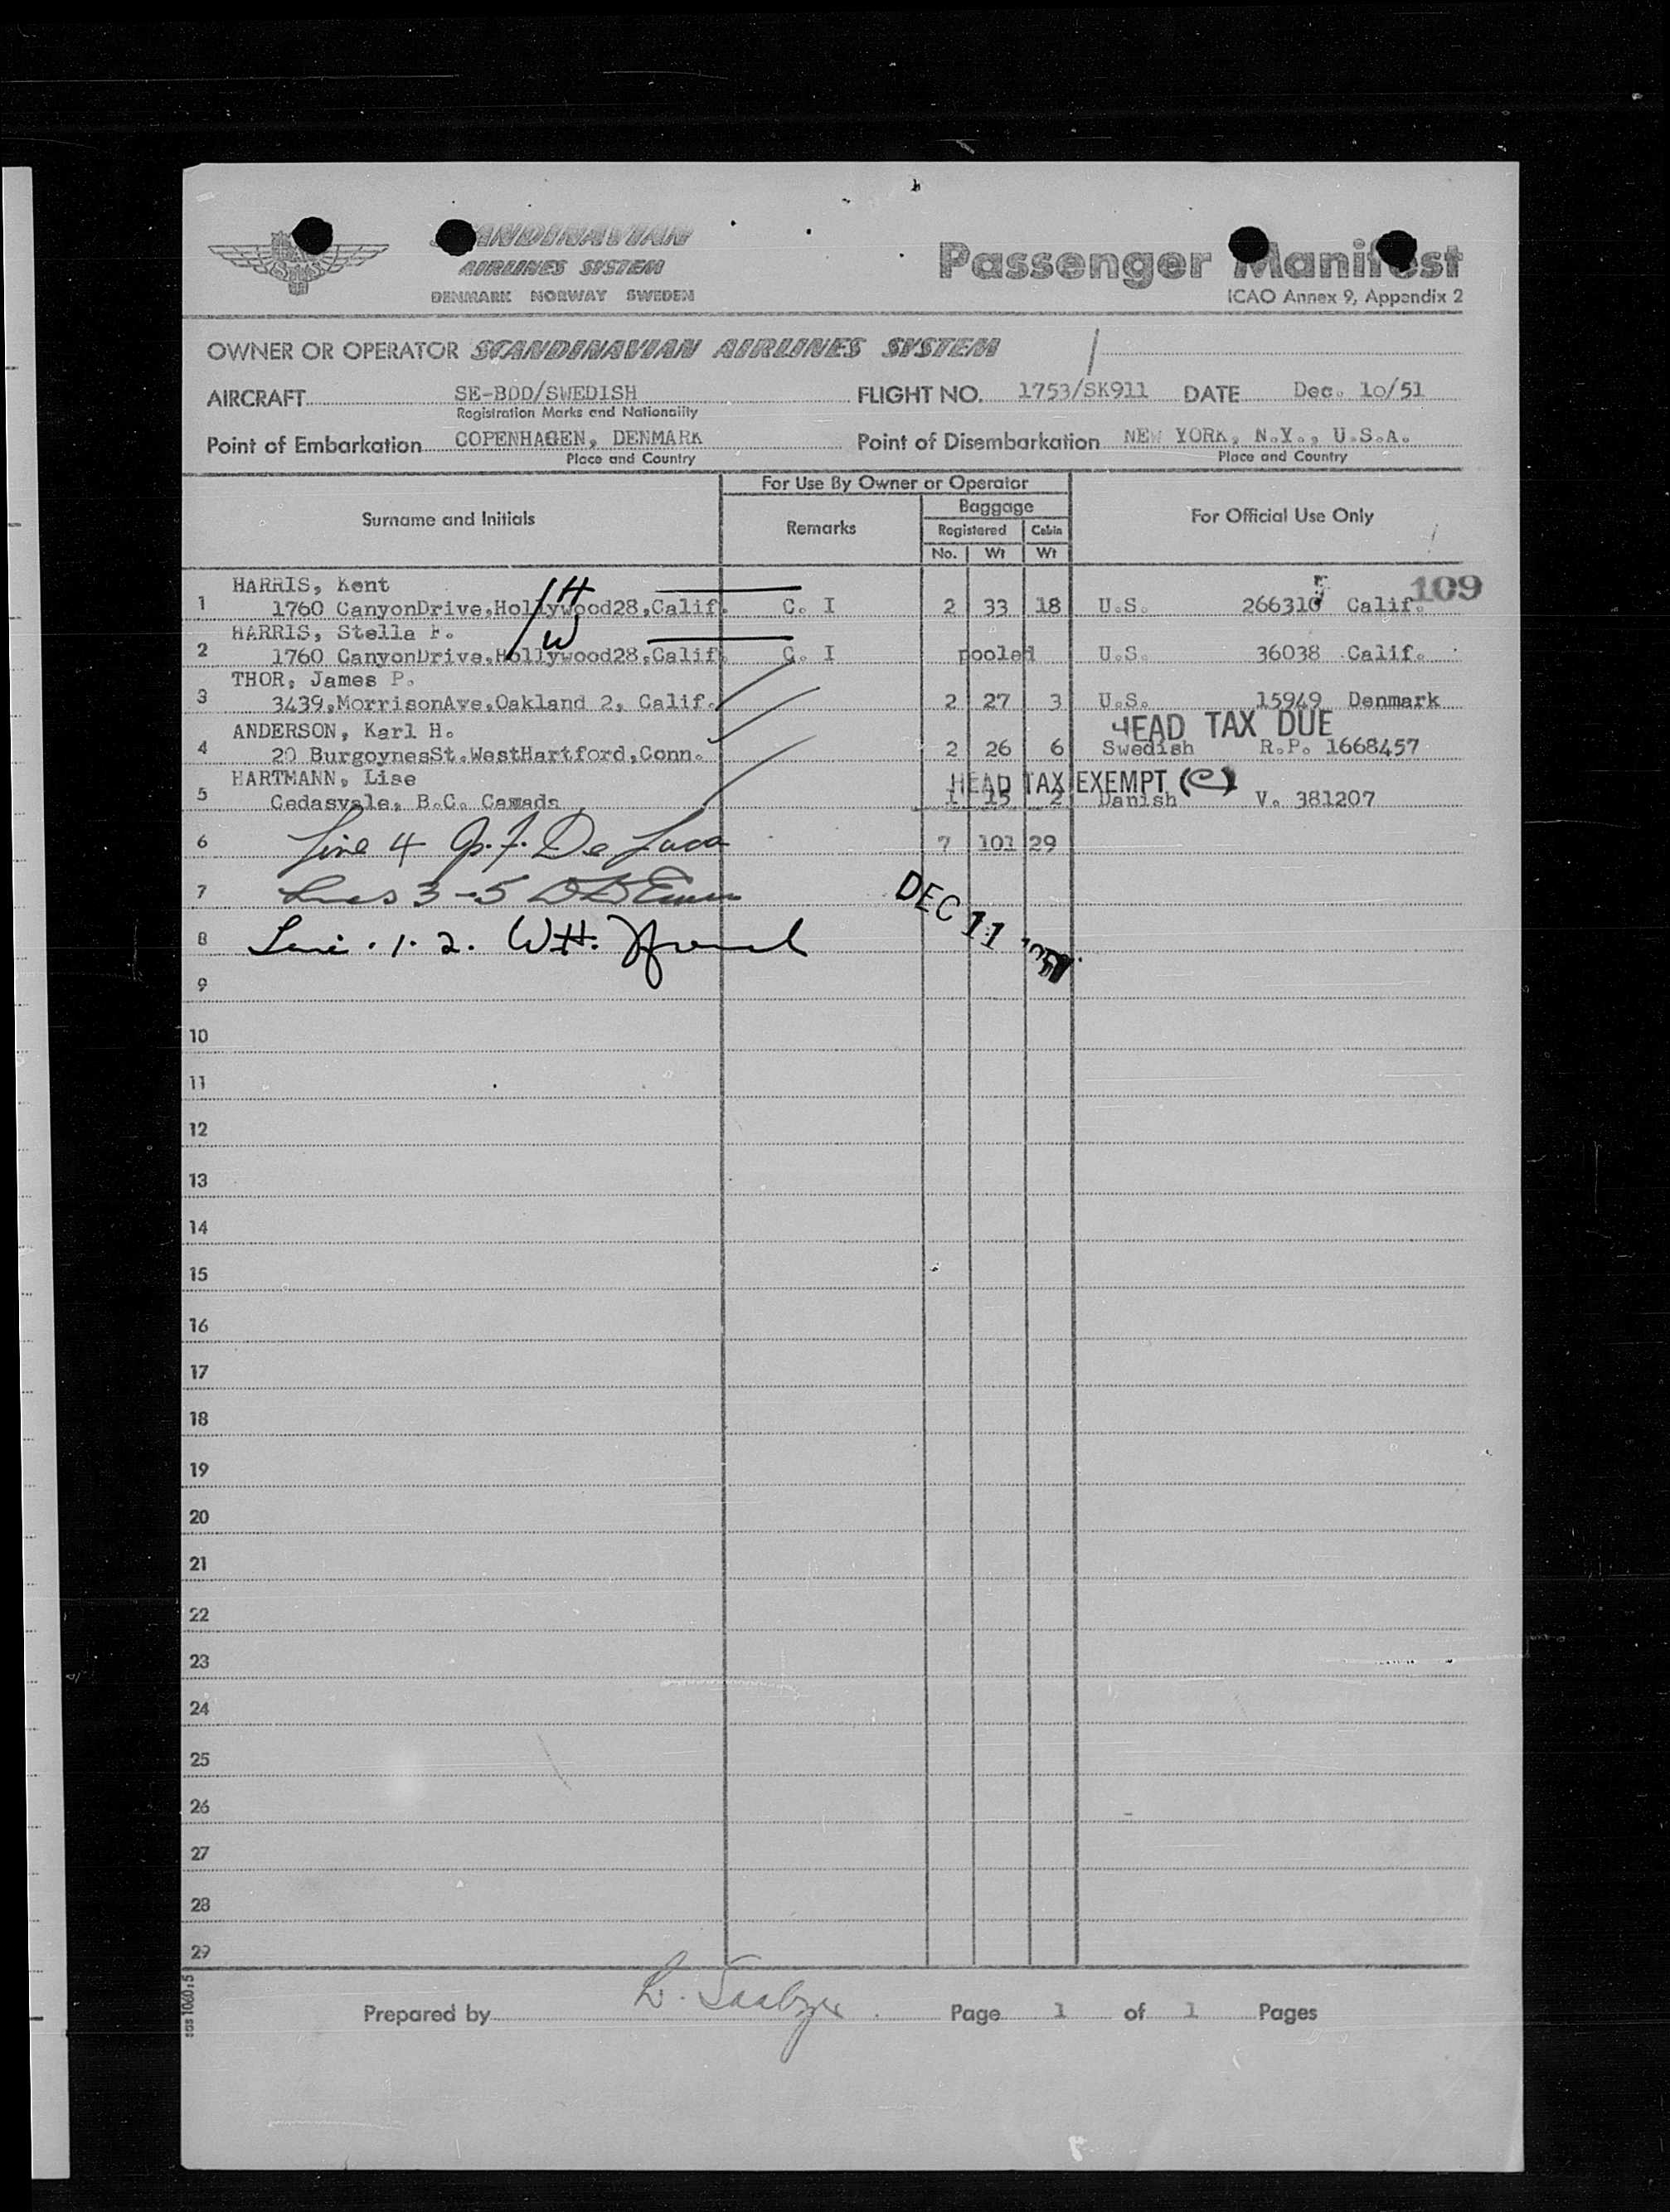 SCANDINAVIAN
AIRLINES SYSTEM
DENMARK NORWAY SWEDEN
Passenger Manifest
ICAO Annex 9, Appendix 2
OWNER OR OPERATOR SCANDINAVIAN AIRLINES SYSTEM
AIRCRAFT SE-BDD/SWEDISH FLIGHT NO. 1753/SK911 DATE Dec. 10/51
Registration Marks and Nationality
Point of Embarkation COPENHAGEN, DENMARK Point of Disembarkation NEW YORK, N.Y., U.S.A.
Place and Country Place and Country
For Use By Owner or Operator
Surname and Initials Remarks Baggage For Official Use Only
Registered Cabin
No. Wt Wt
109
HARRIS, Kent H
1 1760 CanyonDrive,Hollywood28,Calif. C. I 2 33 18 U.S. 266310 Calif.
HARRIS, Stella F. W
2 1760 CanyonDrive,Hollywood28,Calif. C. I pooled U.S. 36038 Calif.
THOR, James P.
3 3439,MorrisonAve,Oakland 2, Calif. 2 27 3 U.S. 15949 Denmark
HEAD TAX DUE
ANDERSON, Karl H.
4 20 BurgoynesSt.WestHartford,Conn. 2 26 6 Swedish R.P. 1668457
HEAD TAX EXEMPT (C)
HARTMANN, Lise
5 Cedasvale, B.C. Camada 1 15 2 Danish V. 381207
6 Line 4 De Luca 7 101 29
7 Lines 3-5
8 Line . 1. 2. W.H.
DEC 11
9
10
11
12
13
14
15
16
17
18
19
20
21
22
23
24
25
26
27
28
29
sas 1060:5
Prepared by Page 1 of 1 Pages